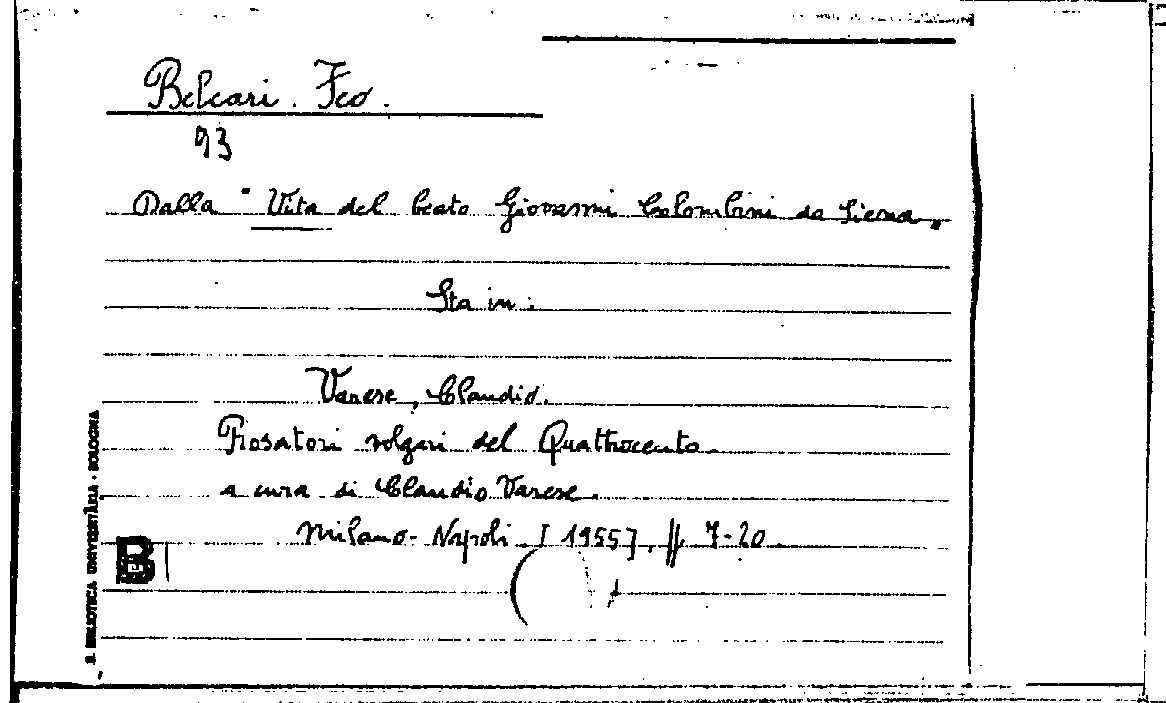 Belcari. Feo.
93
Dalla "Vita del beato Giovanni Colombini da Siena„
Sta in:
Varese, Claudio.
Prosatori volgari del Quattrocento.
a cura di Claudio Varese.
Milano-Napoli [1955], pp 7-20
B
B. BIBLIOTECA UNIVERSITARIA - BOLOGNA